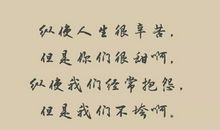 纵使人生很辛苦，
但是你们很甜啊。
纵使我们经常抱怨，
但是我们不垮啊。